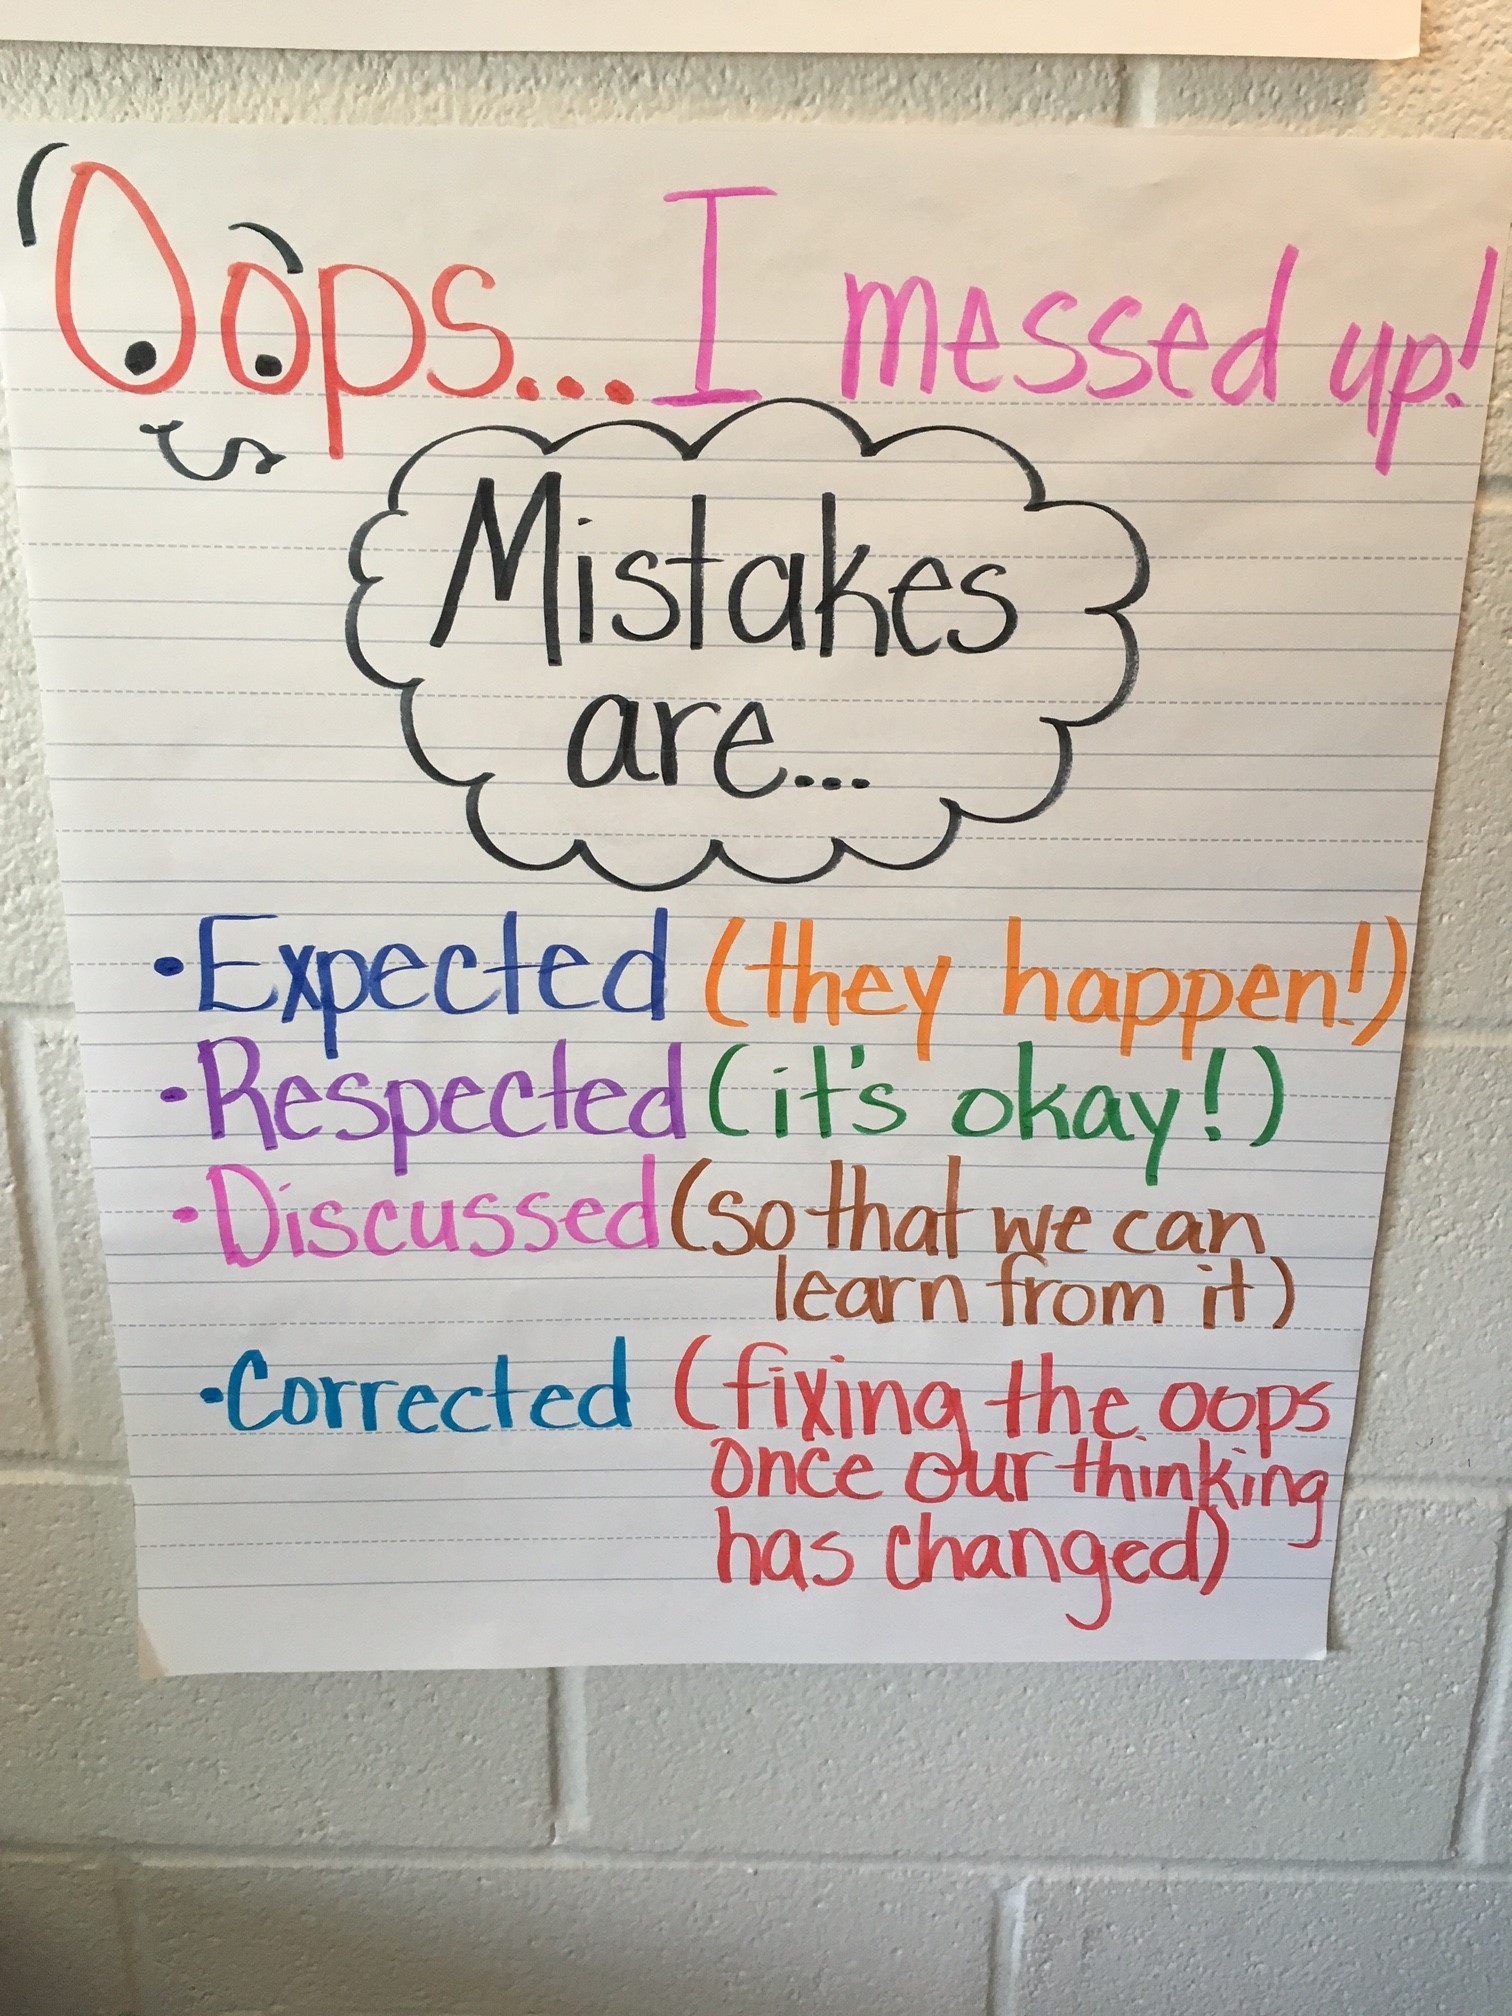 Oops... I messed up!
Mistakes
are...
•Expected (they happen!)
•Respected (it's okay!)
•Discussed (so that we can
learn from it)
•Corrected (fixing the oops
once our thinking
has changed)